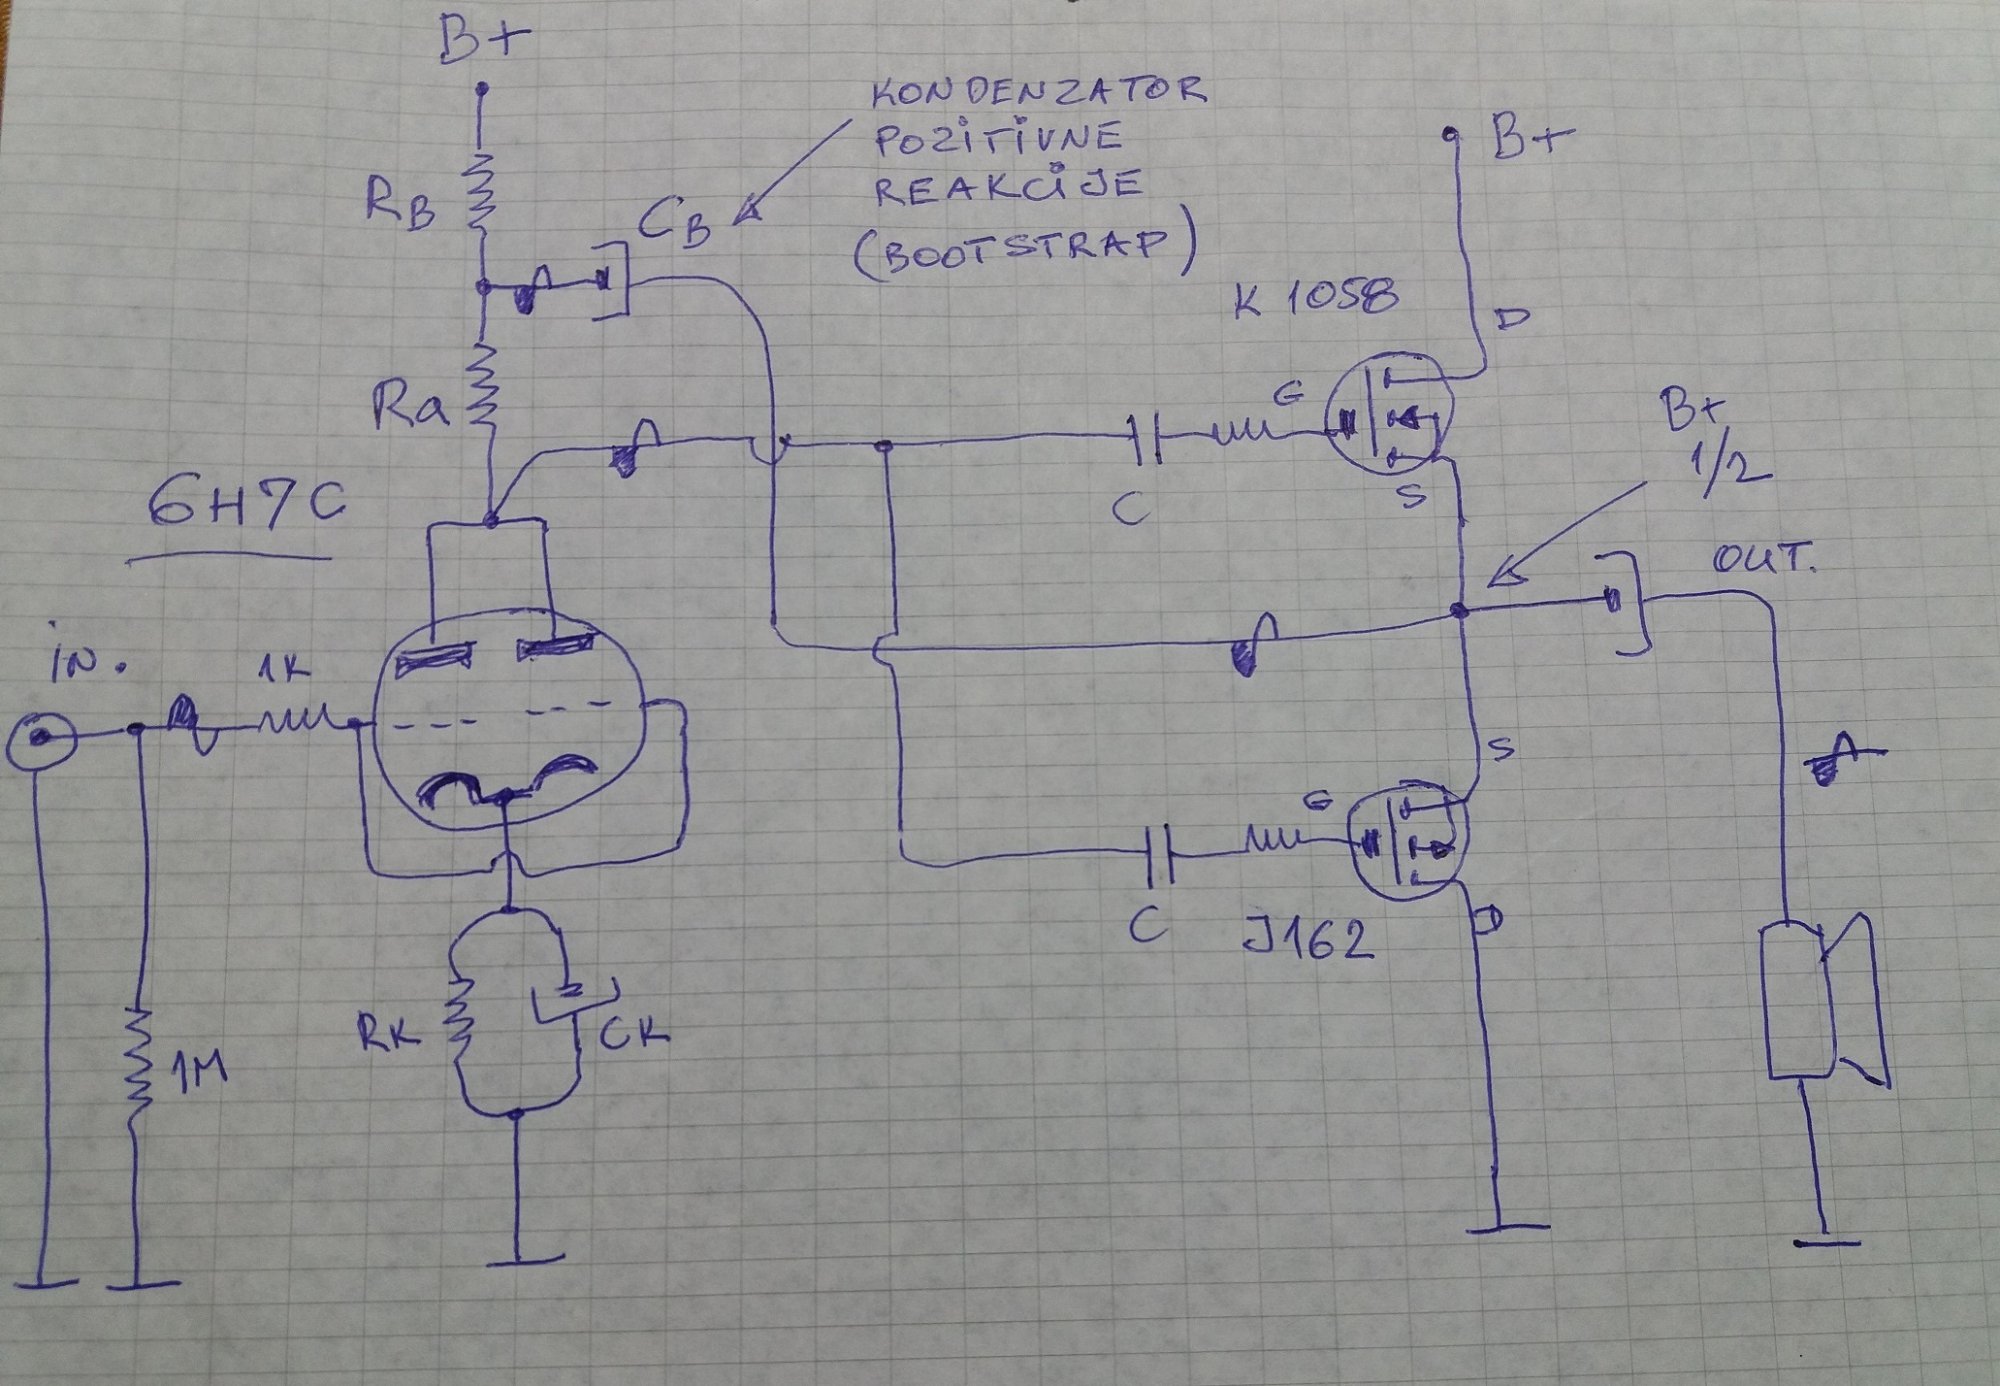 B+
KONDENZATOR
POZITIVNE
REAKCIJE
(BOOTSTRAP)
B+
RB
CB
K 1058
D
Ra
G
B+
1/2
6H7C
C
S
OUT.
IN.
1K
S
G
C
J162
D
RK
CK
1M